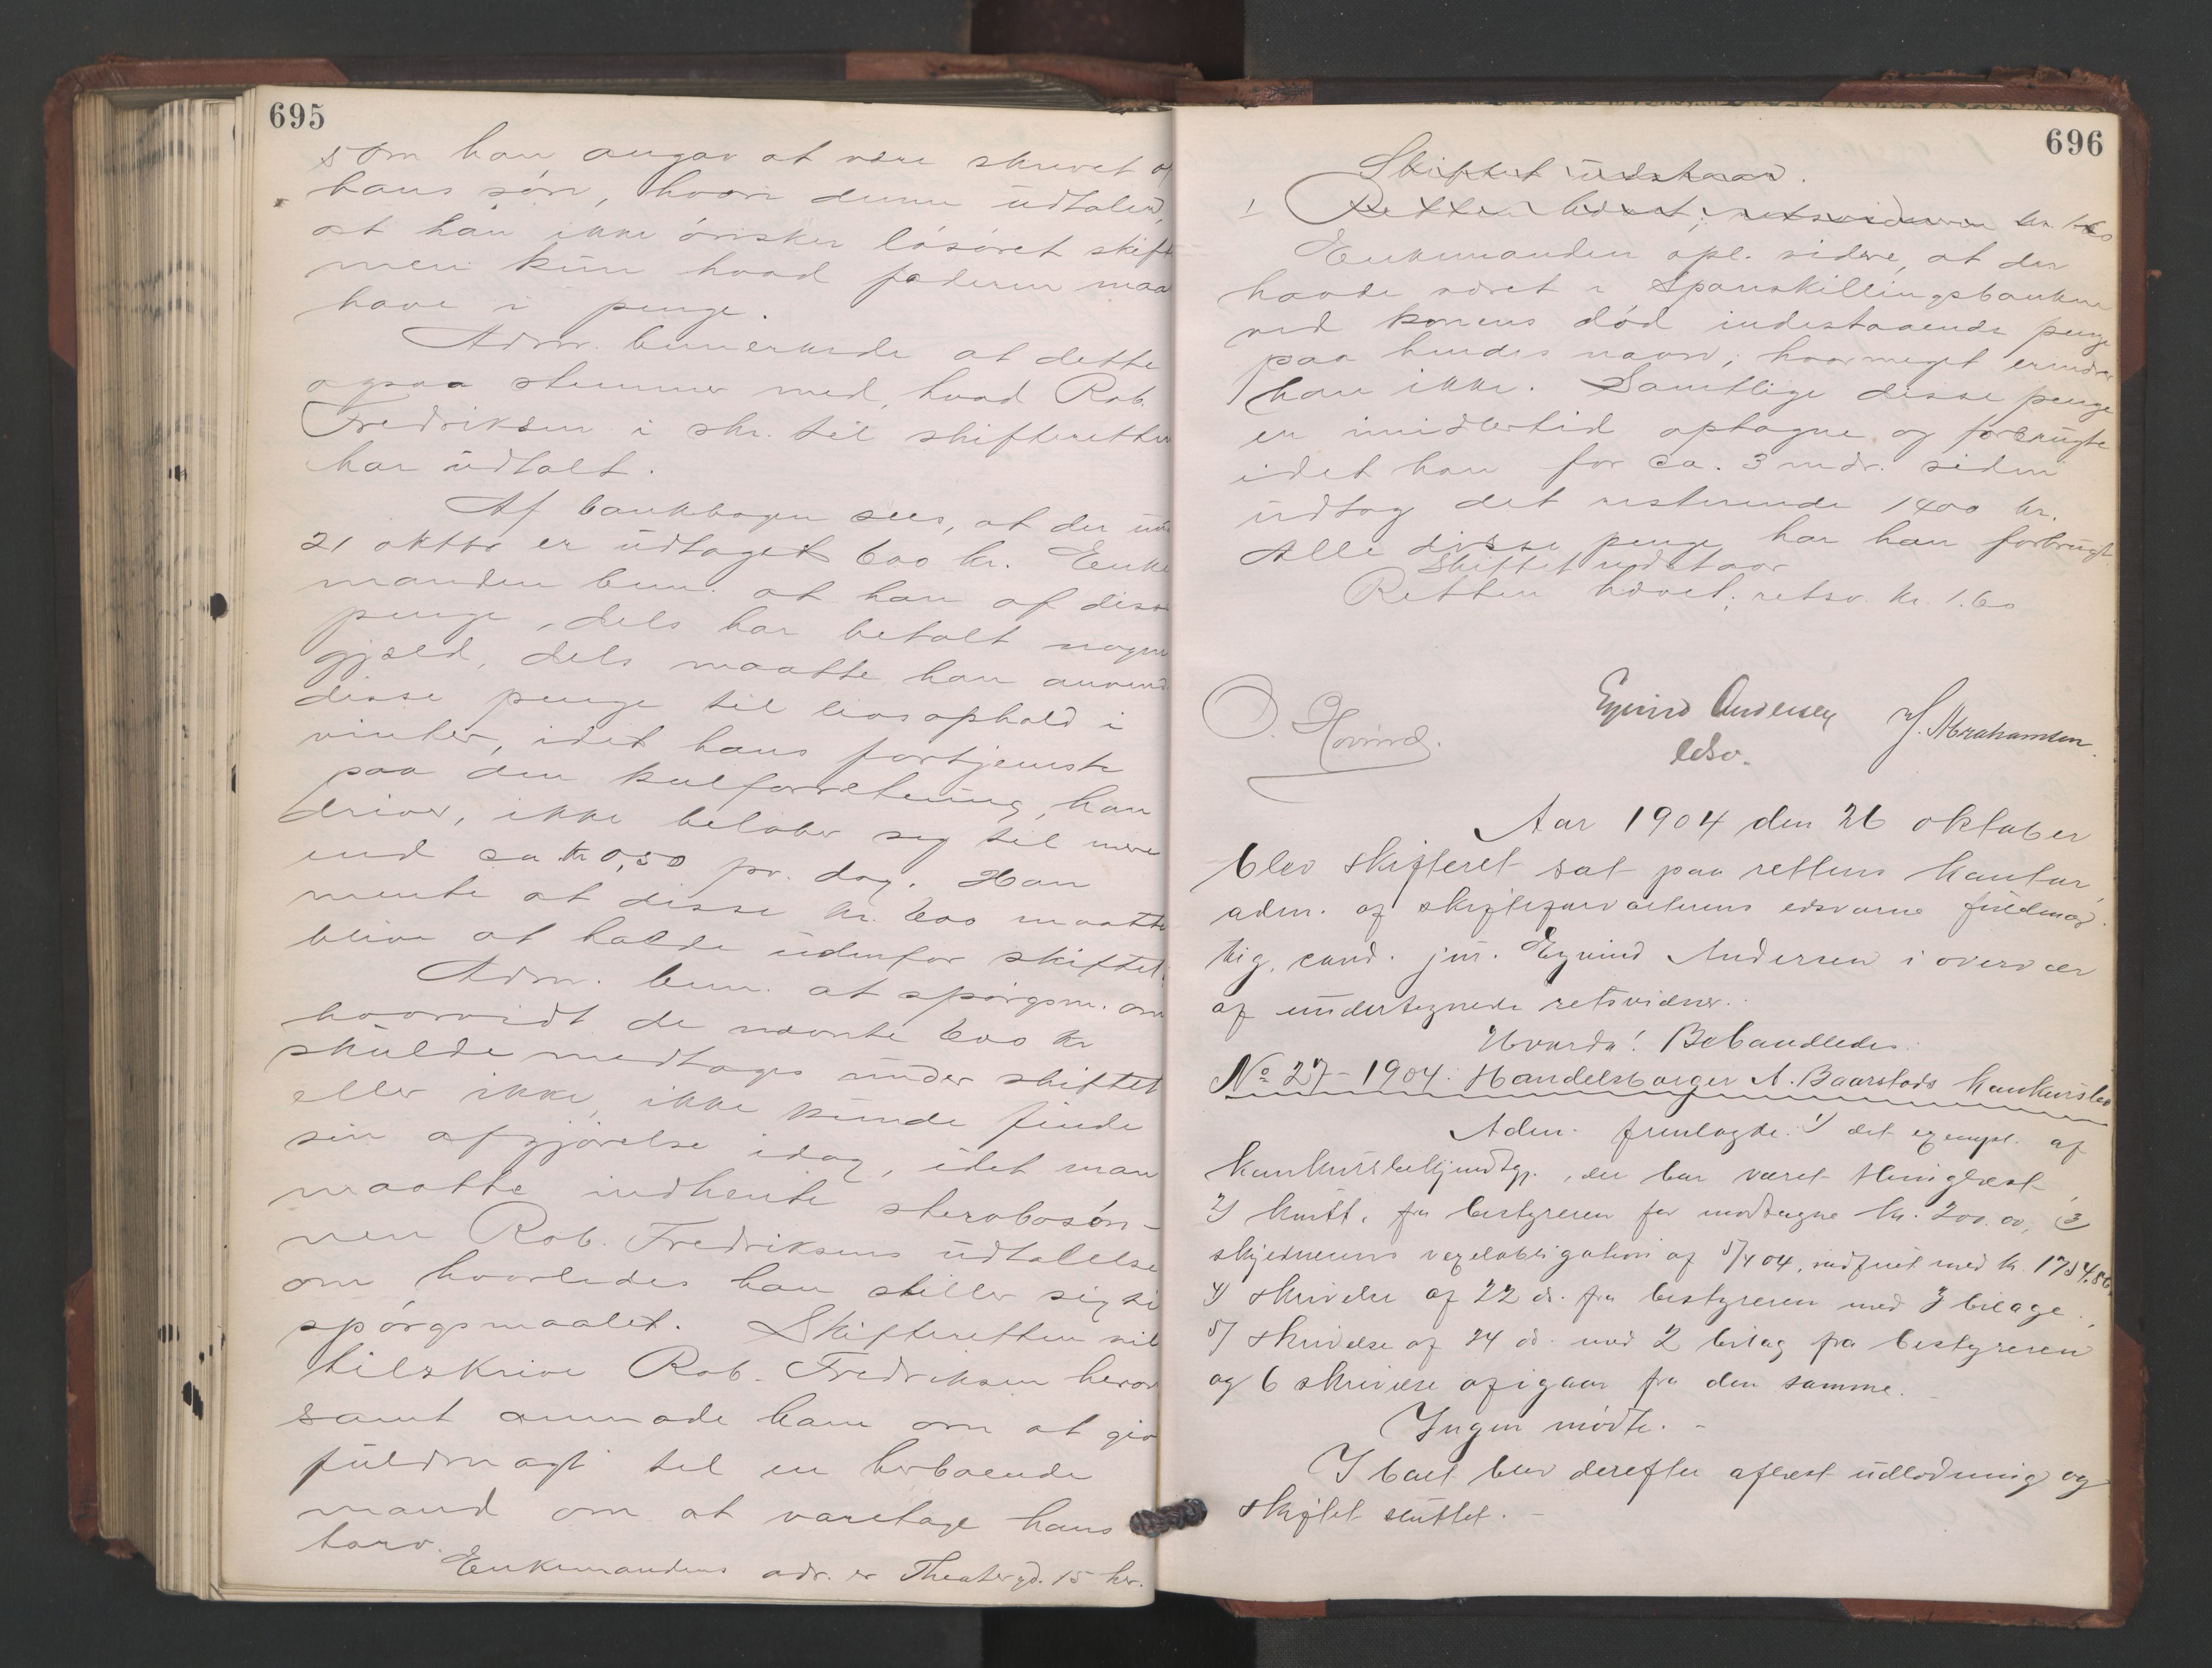 695
som han angav at være skrevet af
hans søn, hvori denne udtaler,
at han ikke ønsker løsøret skift
men kun hvad faderen maa
have i penge.
Adm. bemerkede at dette
ogsaa stemmer med, hvad Rob.
Fredriksen i skr. til skifteretten
har udtalt.
Af bankbogen sees, at der un
21 oktbr er udtaget 600 kr. Enke
manden bem. at han af disse
penge, dels har betalt nogen
gjæld, dels maatte han anvend
disse penge til livsophold i
vinter, idet hans fortjeneste
paa den kulforretning, han
driver, ikke beløber sig til mere
end ca kr 0,50 pr. dag. Han
mente at disse kr. 600 maatte
blive at holde udenfor skiftet.
Adm. bem. at spørgsm. om
hvorvidt de nævnte 600 kr
skulde medtages under skiftet
eller ikke, ikke kunde finde
sin afgjørelse idag, idet man
maatte indhente sterbosøn-
nen Rob. Fredriksens udtalelse
om hvorledes han stiller sig til
spørgsmaalet. Skifteretten vil
tilskrive Rob. Fredriksen herom
samt anmode ham om at giv
fuldmagt til en herboende
mand om at varetage hans
tarv.
Enkemandens adr. er Theatergd. 15 her.
696
Skiftet udstaar.
Retten hævet; retsvidnerne kr. 1.60
Enkemanden opl. videre, at der
havde været i Sparskillingsbanken
ved konens død indestaaende penge
paa hendes navn; hvormeget erindrer
han ikke. Samtlige disse penge
er imidlertid optagne og forbrugte
idet han for ca. 3 mdr. siden
udtog det resterende 1400 kr.
Alle disse penge har han forbrugt.
Skiftet udstaar
Retten hævet; retsv. kr. 1.60
O. Hovind.
Eyvind Andersen
edsv.
J. Abrahamsen.
Aar 1904 den 26 oktober
blev skifteret sat paa rettens kontor,
adm. af skifteforvalterens edsvorne fuldmæg-
tig, cand. jur. Eyvind Andersen i overvær
af undertegnede retsvidner.
Hvorda! Behandledes:
No 27-1904. Handelsborger A. Baarstads konkursbo
Adm. fremlagde: 1) det exempl. af
konkursbekjendtgj., der har været thinglæst,
2) kvitt. fra bestyreren for modtagne kr. 200.00, 3)
skjødnerens vexelobligation af 5/4 04, indfriet med kr. 1754.86
4) skrivelse af 22 ds. fra bestyreren med 3 bilage.,
5) skrivelse af 24 ds. med 2 bilag fra bestyreren
og 6 skrivelse af igaar fra den samme.
Ingen mødte. -
I boet blev derefter aflæst udlodning og
skiftet sluttet. -